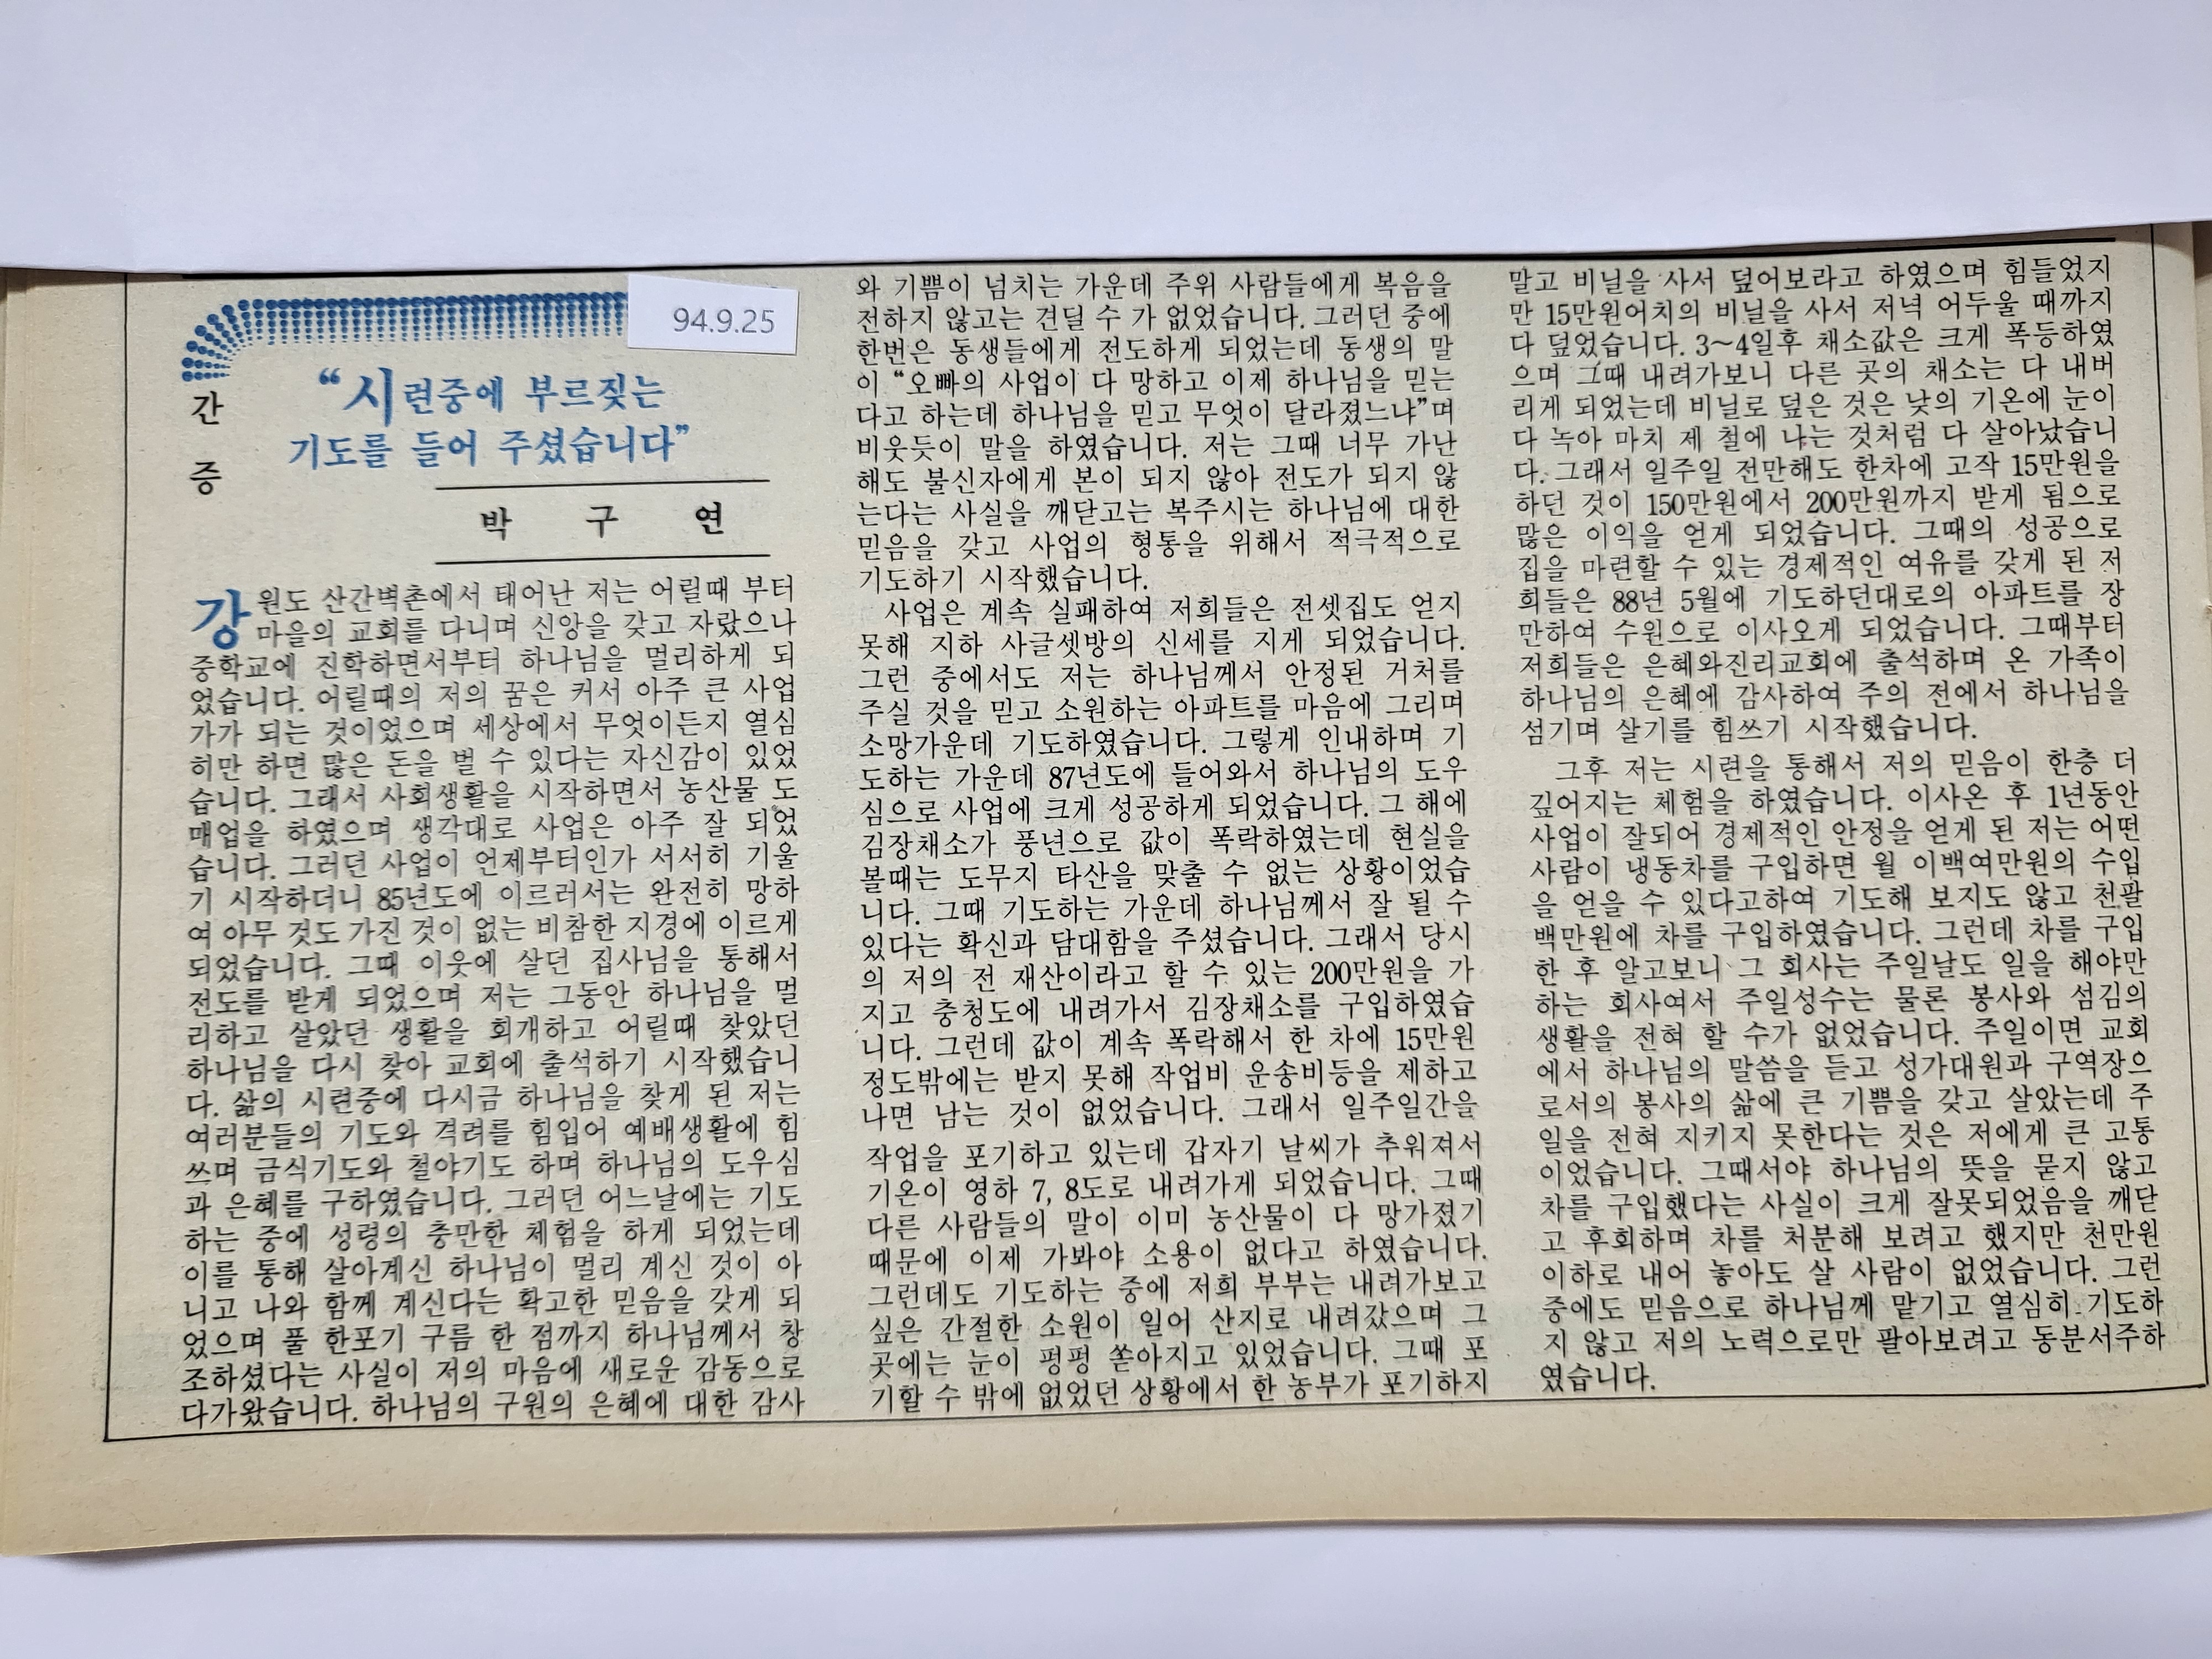 94.9.25
간증
“시련중에 부르짖는
기도를 들어 주셨습니다”
박 구 연
강원도 산간벽촌에서 태어난 저는 어릴때 부터
마을의 교회를 다니며 신앙을 갖고 자랐으나
중학교에 진학하면서부터 하나님을 멀리하게 되
었습니다. 어릴때의 저의 꿈은 커서 아주 큰 사업
가가 되는 것이었으며 세상에서 무엇이든지 열심
히만 하면 많은 돈을 벌 수 있다는 자신감이 있었
습니다. 그래서 사회생활을 시작하면서 농산물 도
매업을 하였으며 생각대로 사업은 아주 잘 되었
습니다. 그러던 사업이 언제부터인가 서서히 기울
기 시작하더니 85년도에 이르러서는 완전히 망하
여 아무 것도 가진 것이 없는 비참한 지경에 이르게
되었습니다. 그때 이웃에 살던 집사님을 통해서
전도를 받게 되었으며 저는 그동안 하나님을 멀
리하고 살았던 생활을 회개하고 어릴때 찾았던
하나님을 다시 찾아 교회에 출석하기 시작했습니
다. 삶의 시련중에 다시금 하나님을 찾게 된 저는
여러분들의 기도와 격려를 힘입어 예배생활에 힘
쓰며 금식기도와 철야기도 하며 하나님의 도우심
과 은혜를 구하였습니다. 그러던 어느날에는 기도
하는 중에 성령의 충만한 체험을 하게 되었는데
이를 통해 살아계신 하나님이 멀리 계신 것이 아
니고 나와 함께 계신다는 확고한 믿음을 갖게 되
었으며 풀 한포기 구름 한 점까지 하나님께서 창
조하셨다는 사실이 저의 마음에 새로운 감동으로
다가왔습니다. 하나님의 구원의 은혜에 대한 감사
와 기쁨이 넘치는 가운데 주위 사람들에게 복음을
전하지 않고는 견딜 수 가 없었습니다. 그러던 중에
한번은 동생들에게 전도하게 되었는데 동생의 말
이 “오빠의 사업이 다 망하고 이제 하나님을 믿는
다고 하는데 하나님을 믿고 무엇이 달라졌느냐”며
비웃듯이 말을 하였습니다. 저는 그때 너무 가난
해도 불신자에게 본이 되지 않아 전도가 되지 않
는다는 사실을 깨닫고는 복주시는 하나님에 대한
믿음을 갖고 사업의 형통을 위해서 적극적으로
기도하기 시작했습니다.
사업은 계속 실패하여 저희들은 전셋집도 얻지
못해 지하 사글셋방의 신세를 지게 되었습니다.
그런 중에서도 저는 하나님께서 안정된 거처를
주실 것을 믿고 소원하는 아파트를 마음에 그리며
소망가운데 기도하였습니다. 그렇게 인내하며 기
도하는 가운데 87년도에 들어와서 하나님의 도우
심으로 사업에 크게 성공하게 되었습니다. 그 해에
김장채소가 풍년으로 값이 폭락하였는데 현실을
볼때는 도무지 타산을 맞출 수 없는 상황이었습
니다. 그때 기도하는 가운데 하나님께서 잘 될 수
있다는 확신과 담대함을 주셨습니다. 그래서 당시
의 저의 전 재산이라고 할 수 있는 200만원을 가
지고 충청도에 내려가서 김장채소를 구입하였습
니다. 그런데 값이 계속 폭락해서 한 차에 15만원
정도밖에는 받지 못해 작업비 운송비등을 제하고
나면 남는 것이 없었습니다. 그래서 일주일간을
작업을 포기하고 있는데 갑자기 날씨가 추워져서
기온이 영하 7, 8도로 내려가게 되었습니다. 그때
다른 사람들의 말이 이미 농산물이 다 망가졌기
때문에 이제 가봐야 소용이 없다고 하였습니다.
그런데도 기도하는 중에 저희 부부는 내려가보고
싶은 간절한 소원이 일어 산지로 내려갔으며 그
곳에는 눈이 펑펑 쏟아지고 있었습니다. 그때 포
기할 수 밖에 없었던 상황에서 한 농부가 포기하지
말고 비닐을 사서 덮어보라고 하였으며 힘들었지
만 15만원어치의 비닐을 사서 저녁 어두울 때까지
다 덮었습니다. 3~4일후 채소값은 크게 폭등하였
으며 그때 내려가보니 다른 곳의 채소는 다 내버
리게 되었는데 비닐로 덮은 것은 낮의 기온에 눈이
다 녹아 마치 제 철에 나는 것처럼 다 살아났습니
다. 그래서 일주일 전만해도 한차에 고작 15만원을
하던 것이 150만원에서 200만원까지 받게 됨으로
많은 이익을 얻게 되었습니다. 그때의 성공으로
집을 마련할 수 있는 경제적인 여유를 갖게 된 저
희들은 88년 5월에 기도하던대로의 아파트를 장
만하여 수원으로 이사오게 되었습니다. 그때부터
저희들은 은혜와진리교회에 출석하며 온 가족이
하나님의 은혜에 감사하여 주의 전에서 하나님을
섬기며 살기를 힘쓰기 시작했습니다.
그후 저는 시련을 통해서 저의 믿음이 한층 더
깊어지는 체험을 하였습니다. 이사온 후 1년동안
사업이 잘되어 경제적인 안정을 얻게 된 저는 어떤
사람이 냉동차를 구입하면 월 이백여만원의 수입
을 얻을 수 있다고하여 기도해 보지도 않고 천팔
백만원에 차를 구입하였습니다. 그런데 차를 구입
한 후 알고보니 그 회사는 주일날도 일을 해야만
하는 회사여서 주일성수는 물론 봉사와 섬김의
생활을 전혀 할 수가 없었습니다. 주일이면 교회
에서 하나님의 말씀을 듣고 성가대원과 구역장으
로서의 봉사의 삶에 큰 기쁨을 갖고 살았는데 주
일을 전혀 지키지 못한다는 것은 저에게 큰 고통
이었습니다. 그때서야 하나님의 뜻을 묻지 않고
차를 구입했다는 사실이 크게 잘못되었음을 깨닫
고 후회하며 차를 처분해 보려고 했지만 천만원
이하로 내어 놓아도 살 사람이 없었습니다. 그런
중에도 믿음으로 하나님께 맡기고 열심히 기도하
지 않고 저의 노력으로만 팔아보려고 동분서주하
였습니다.